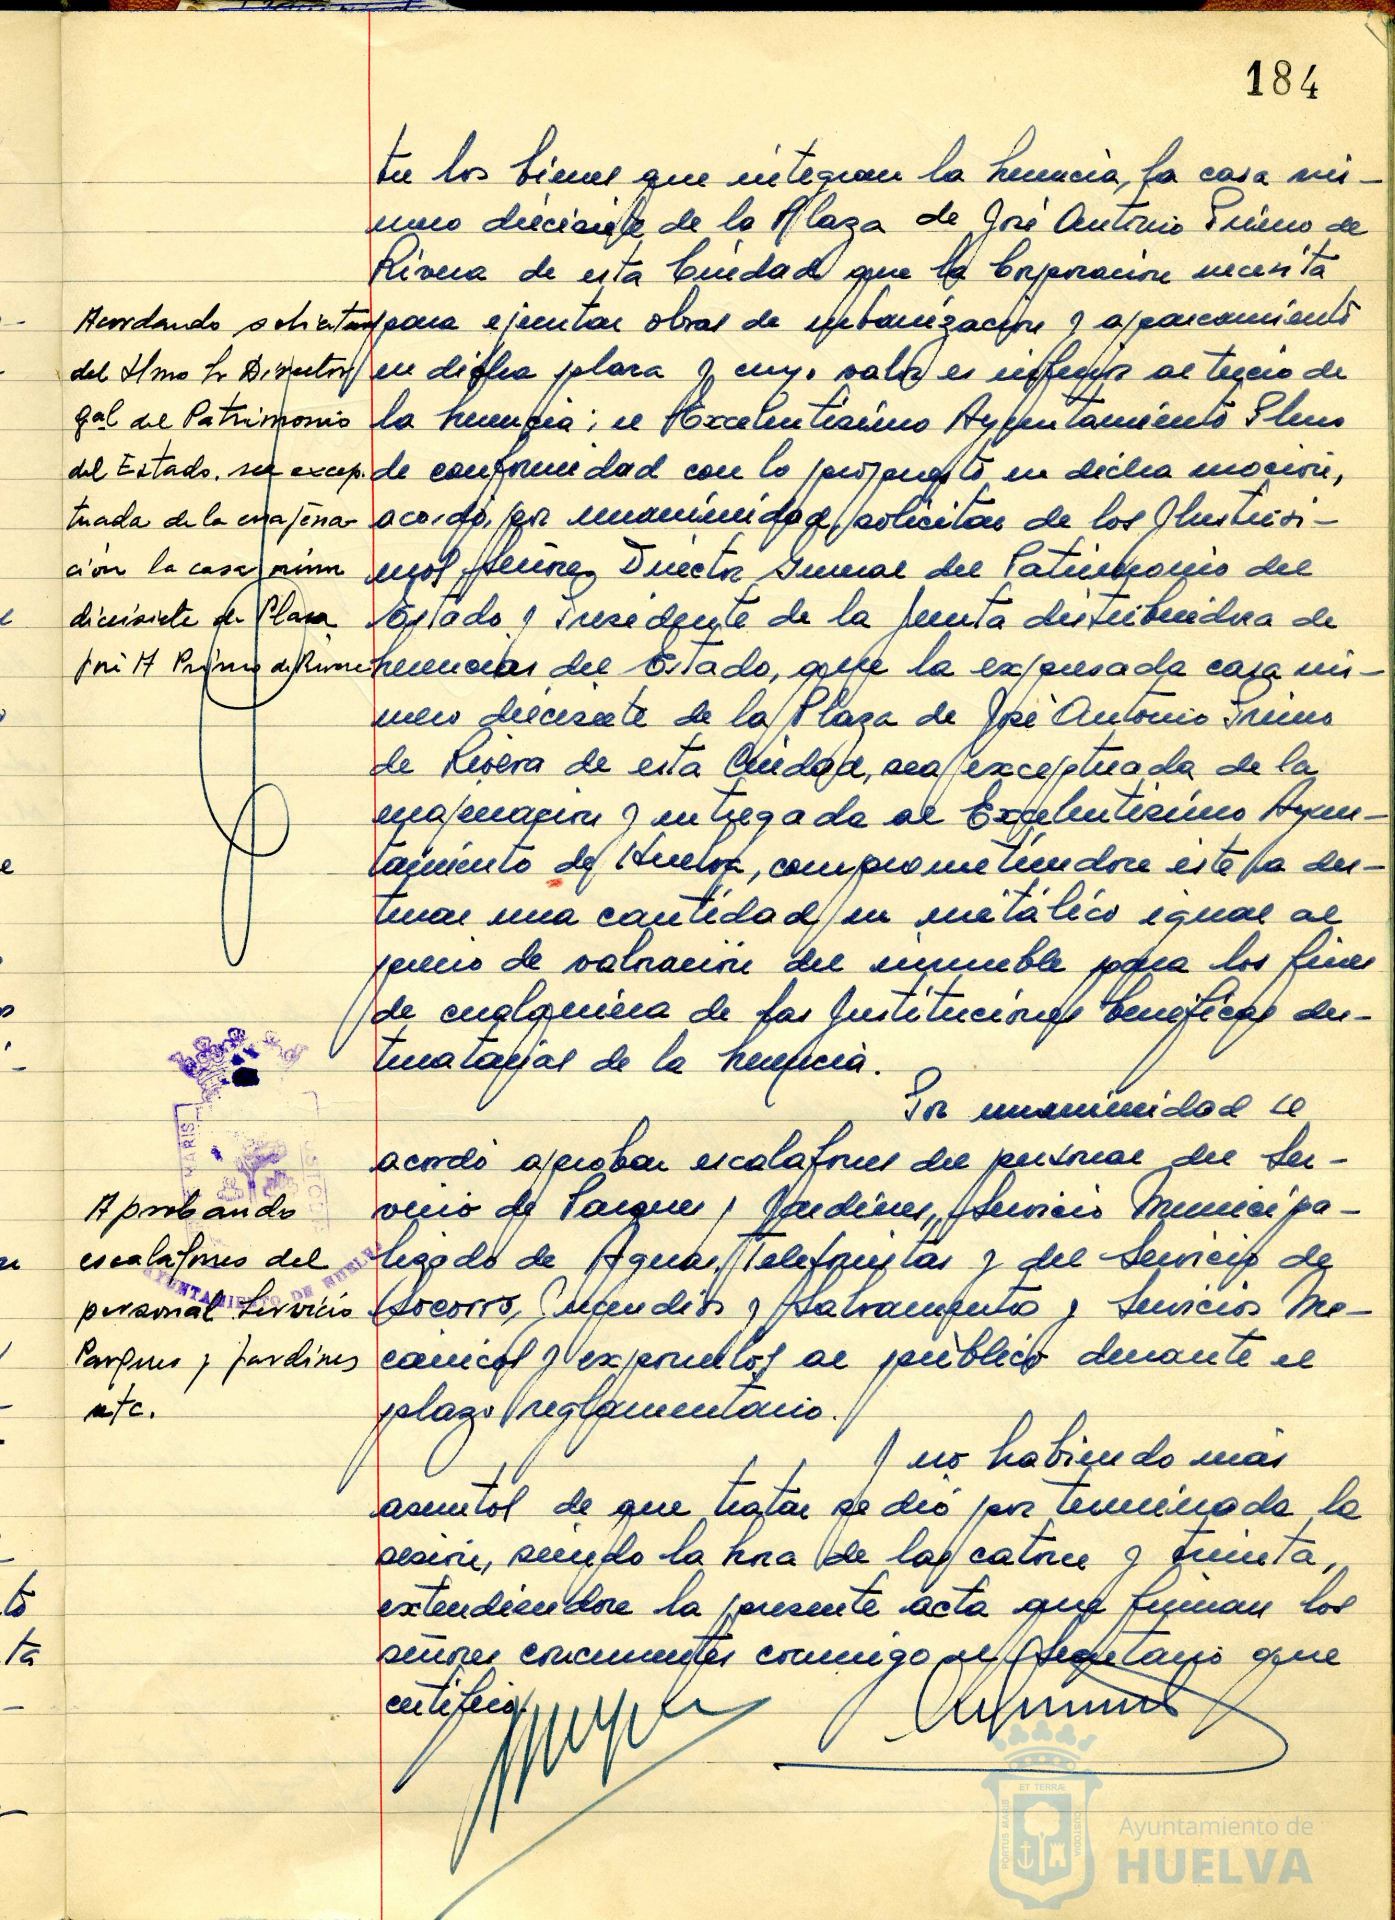 184
tre los bienes que integran la herencia, la casa nú-
mero diecisiete de la Plaza de José Antonio Primo de
Rivera de esta Ciudad que la Corporación necesita
para ejecutar obras de urbanización y aparcamiento
en dicha plaza y cuyo valor es inferior al tercio de
la herencia; el Excelentísimo Ayuntamiento Pleno
de conformidad con lo propuesto en dicha moción,
acordó, por unanimidad, solicitar de los Ilustrísi-
mos Señores Director General del Patrimonio del
Estado y Presidente de la Junta distribuidora de
herencias del Estado, que la expresada casa nú-
mero diecisiete de la Plaza de José Antonio Primo
de Rivera de esta Ciudad, sea exceptuada de la
enajenación y entregada al Excelentísimo Ayun-
tamiento de Huelva, comprometiendose éste a des-
tinar una cantidad en metálico igual al
precio de valoración del inmueble para los fines
de cualquiera de las Instituciónes benéficas des-
tinatarias de la herencia.
Acordando solicitar
del Ilmo Sr Director
Gral del Patrimonio
del Estado. sea excep.
tuada de la enajena-
ción la casa núm
diecisiete de Plaza
José A Primo de Rivera
Por unanimidad se
acordó aprobar escalafones del personal del Ser-
vicio de Parques y Jardines, Servicio Municipa-
lizado de Aguas, Telefonistas y del Servicio de
Socorro, Incendios y Salvamento y Servicios Me-
cánicos y exponerlos al público durante el
plazo reglamentario.
Aprobando
escalafones del
personal Servicio
Parques y Jardines
etc.
AYUNTAMIENTO DE HUELVA
Y no habiendo más
asuntos de que tratar se dió por terminada la
sesión, siendo la hora de las catorce y treinta,
extendiendose la presente acta que firman los
señores concurrentes conmigo el Secretario que
certifico.
PORTUS MARIS
ET TERRÆ
CUSTODIA
Ayuntamiento de
HUELVA